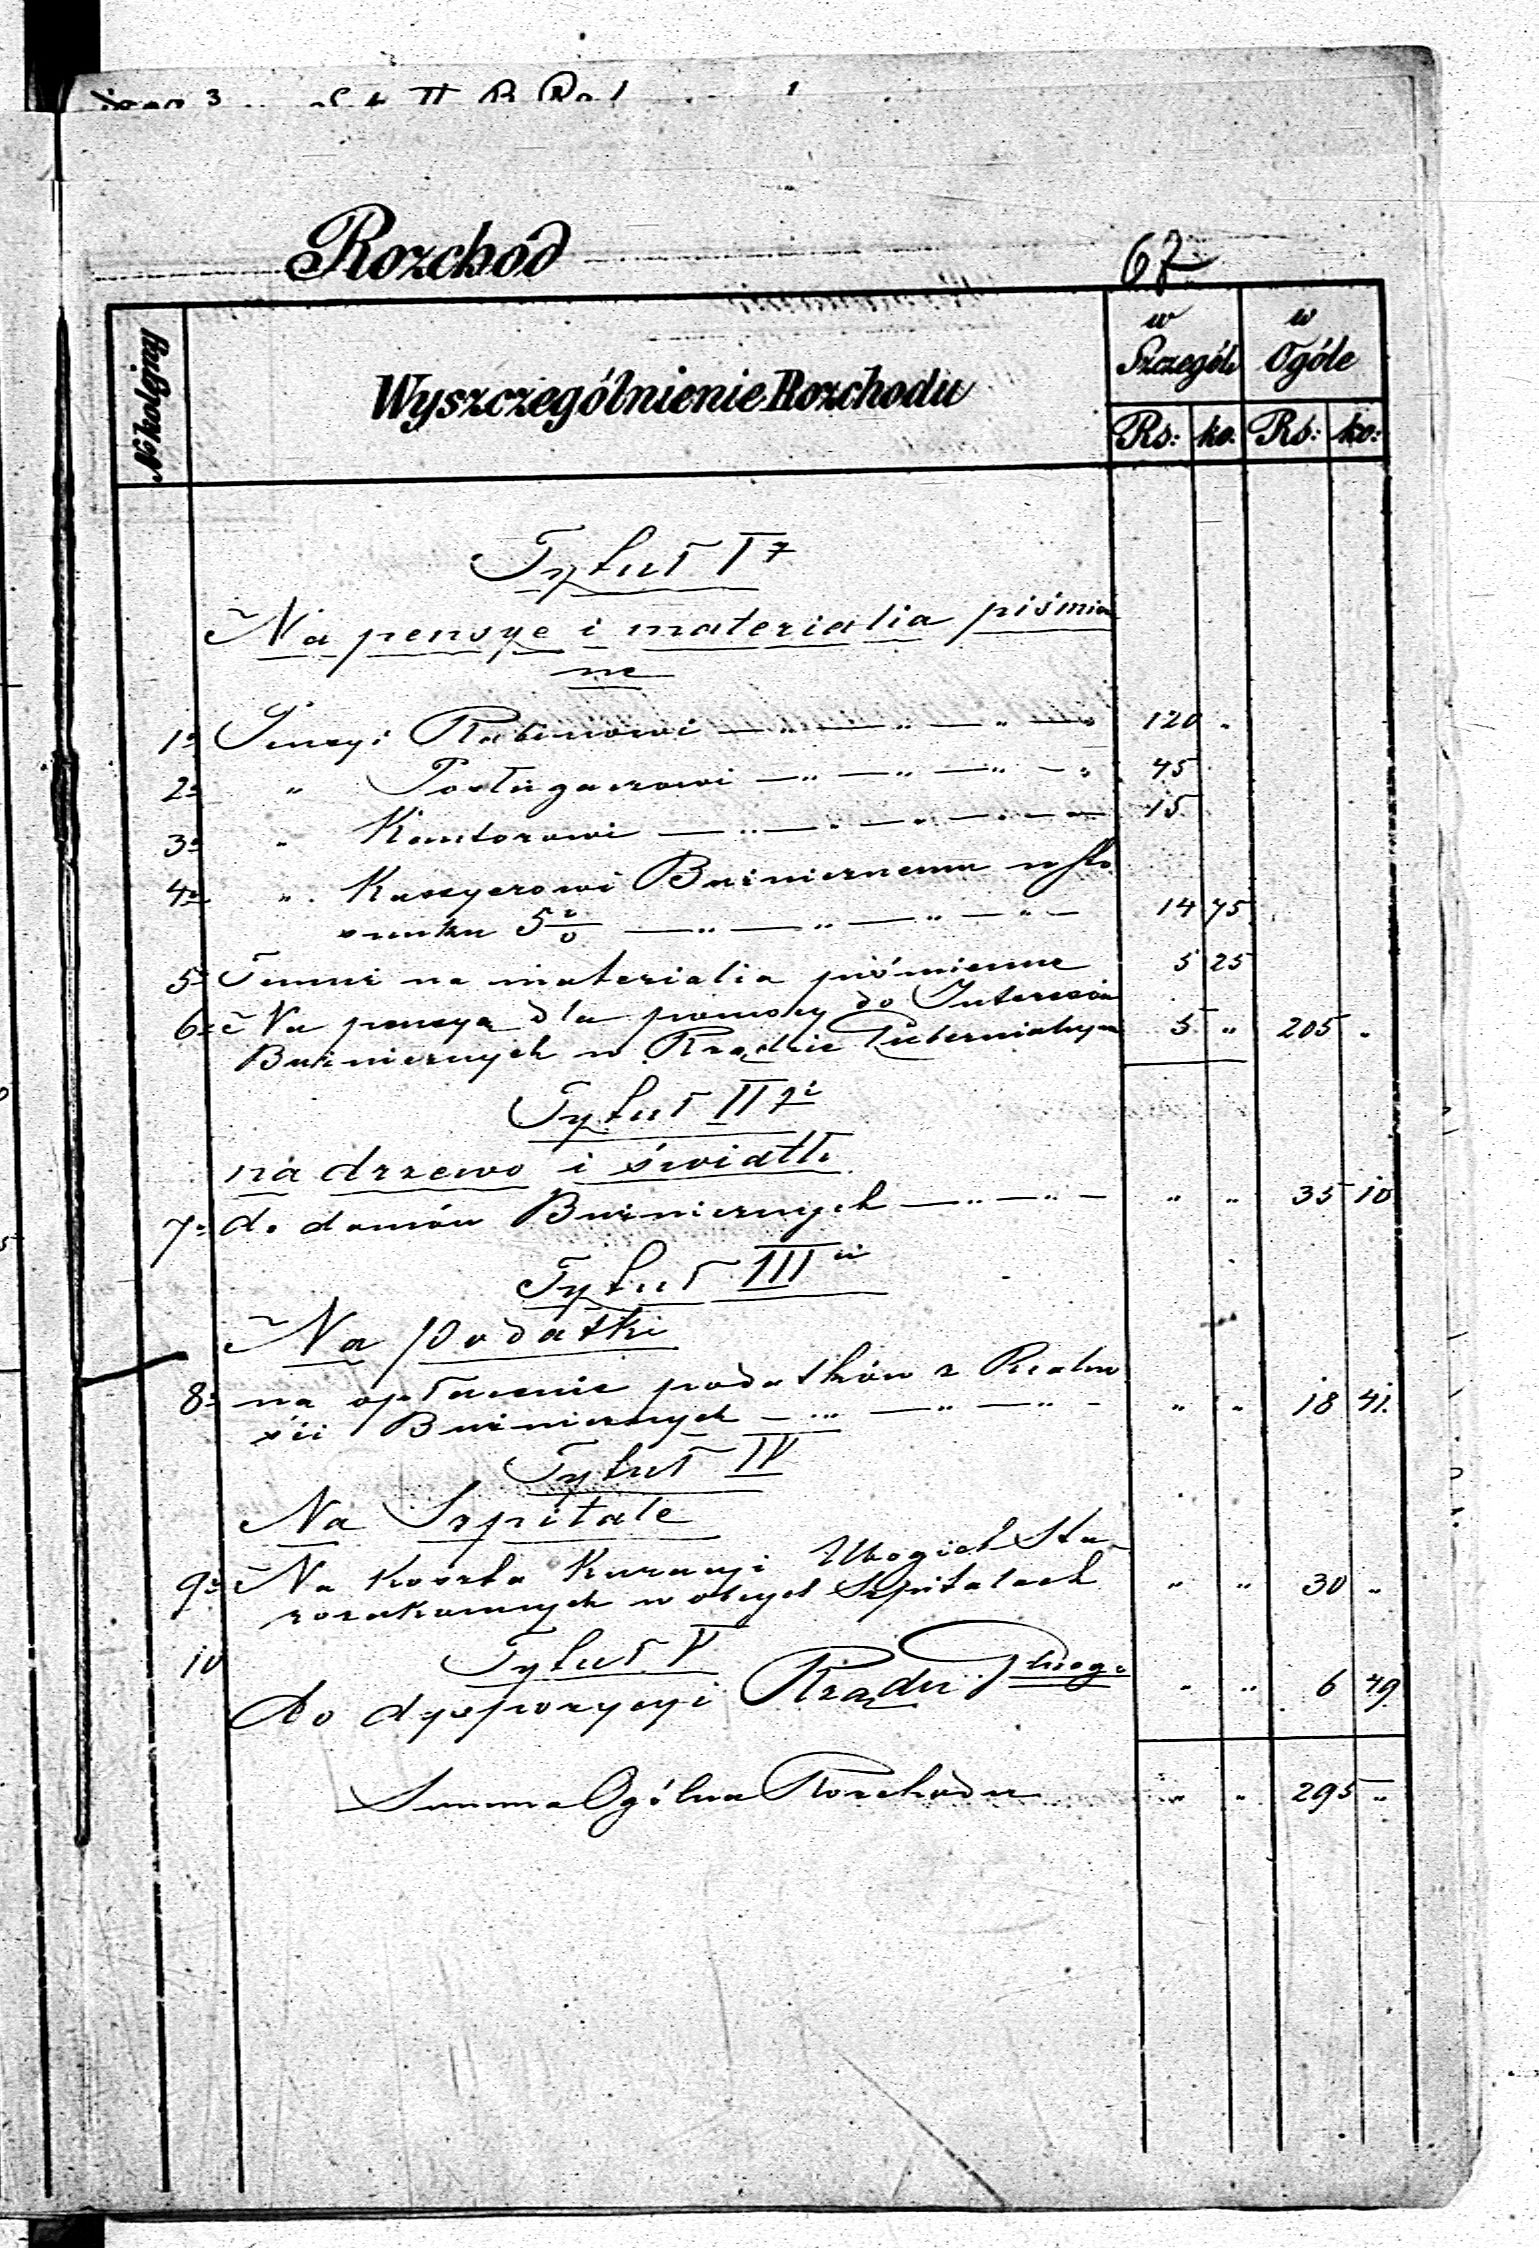 Rozchód
67
№ kolejny
Wyszczególnienie Rozchodu
w Szczegól. w Ogóle
Rs: ko. Rs: ko:
Tytuł I
Na pensye i materialia piśmien
ne
1o Pensyi Rabinowi — „ — „ — „ 120 „
2o „ Posługaczowi — „ — „ — „ — „ 45
3o „ Kantorowi — „ — „ — „ — „ — 15
4o „ Kassyerowi Bużnicznemu w sto
sunku 5% — „ — „ — „ — „ — 14 75
5o Temuż na materialia piśmienne 5 25
6o Na pensya dla pomocy do Interesów
Bużnicznych w Rządzie Gubernialnym 5 „ 205 „
Tytuł II
na drzewo i światło
7o do domów Bużnicznych — „ — „ — „ „ 35 10
Tytuł III
Na podatki
8o na opłacenie podatków z Realno
ści Bużnicznych — „ — „ — „ - „ „ 18 41.
Tytuł IV
Na Szpitale
9o Na koszta Kuracyi Ubogich Sta-
rozakonnych w obcych Szpitalach „ „ 30 „
10 Tytuł V
Do dyspozycyi Rządu „ „ 6 49
Summa Ogólna Rozchodu „ „ 295 „